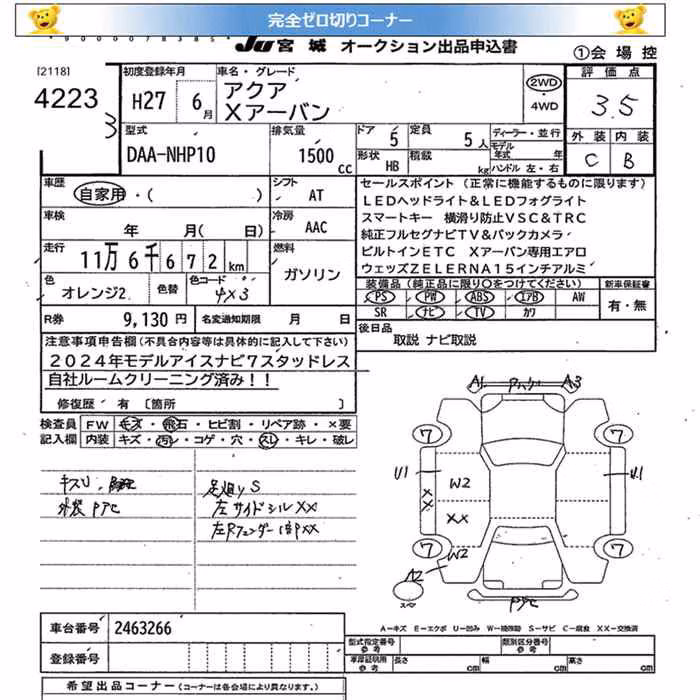 完全ゼロ切りコーナー
*90000078385*
JU宮城 オークション出品申込書
①会場控
[2118]
4223
3
初度登録年月
H27 6月
車名・グレード
アクア
Xアーバン
2WD
・4WD
評価点
3.5
外装 内装
C B
型式
DAA-NHP10
排気量
1500 cc
ドア 5
定員 5人
ディーラー・並行
モデル年式 年
形状 HB
積載 kg
ハンドル 左・右
車歴
自家用・( )
シフト
AT
車検
年 月( 日)
冷房
AAC
走行
11万6千672km
燃料
ガソリン
色
オレンジ2
色替
色コード
4X3
R券
9,130円
名変通知期限 月 日
セールスポイント (正常に機能するものに限ります)
LEDヘッドライト&LEDフォグライト
スマートキー 横滑り防止VSC&TRC
純正フルセグナビTV&バックカメラ
ビルトインETC Xアーバン専用エアロ
ウェッズZELERNA15インチアルミ
装備品 (純正品に限り○をつけてください)
新車保証書
PS PW ABS エアB AW
SR ナビ TV カワ
有・無
後日品
取説 ナビ取説
注意事項申告欄(不具合内容等は具体的に記入して下さい)
2024年モデルアイスナビ7スタッドレス
自社ルームクリーニング済み!!
修復歴・有 [箇所 ]
検査員記入欄
FW キズ・飛石・ヒビ割・リペア跡・×要
内装 キズ・汚レ・コゲ・穴・スレ・キレ・破レ
キズU、
外装PTC
足廻りS
左サイドシルXX
左Rフェンダー
A1 A3
7 7
U1 U1
W2
XX
XX
W2
7 7
A2
スペア
PTC
A-キズ E-エクボ U-凹み W-補修跡 S-サビ C-腐食 XX-交換済
車台番号 2463266
登録番号
型式指定番号 参考
類別区分番号 参考
車庫証明用 参考 長さ cm 幅 cm 高さ cm
希望出品コーナー(コーナーは各会場により異なります。)